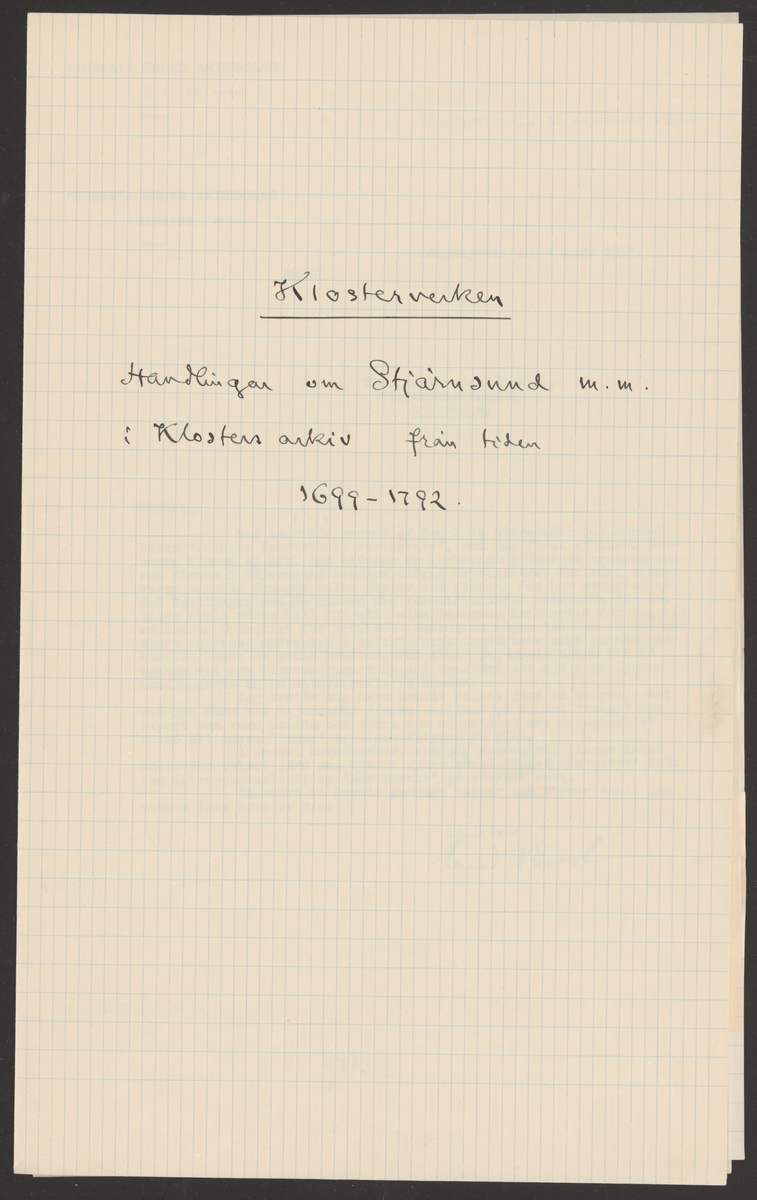 Klosterverken
Handlingar om Stjärnsund m.m.
i Klosters arkiv från tiden
1699-1792.